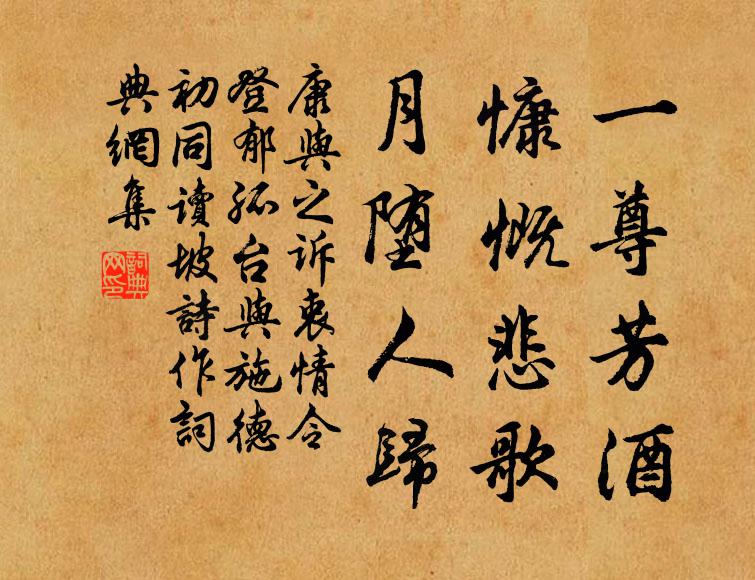 一尊芳酒
慷慨悲歌
月堕人歸
康與之诉衷情令
登郁孤台與施德
初同讀坡詩作詞
典網集
詞典
网印